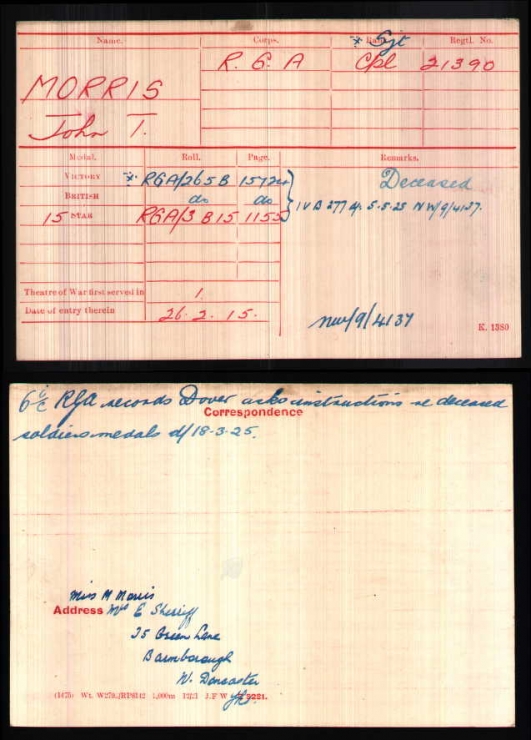 Name. Corps. Rank. Regtl. No.
* Sgt
R. G. A Cpl 21390
MORRIS
John T.
Medal. Roll. Page. Remarks.
VICTORY * RGA/265B Deceased
BRITISH do do IVB 277 5-5-25 NW/9/4137.
15 STAR RGA/3 B15 1155
Theatre of War first served in 1.
Date of entry therein 26. 2. 15.
NW/9/4137
K. 1380
O i/c RGA records Dover asks instructions re deceased
Correspondence
soldiers medals d/18-3-25.
Miss M Morris
Address E Sherriff
35 Green Lane
Barmborough
Nr. Doncaster
Yks.
1,000m J.F.W